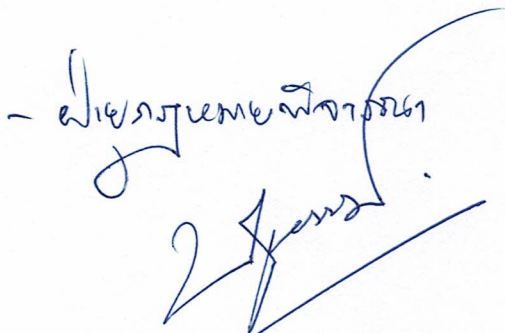 - ฝ่ายกฎหมายพิจารณา